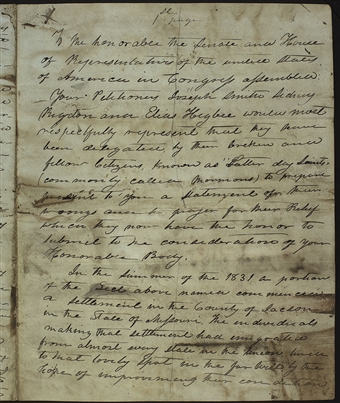 1st page
To the honorable the Senate and House
of Representatives of the united States
of America in Congress assembled
Your Petitioners Joseph Smith Sidney
Rigdon and Elias Higbee would most
respectfully represent that they have
been delegated by their brethren and
fellow Citizens, known as Latter day Saints
(commonly called Mormons) to prepare
and present to you a statement of their
wrongs and to prayer for their Relief
which they now have the honor to
submit to the considerations of your
Honorable Body.
In the summer of the 1831 a portion
of the Sect above named commenced
a settlement in the County of Jackson
in the State of Missouri. The individuals
making that settlement had emigrated
from almost every state in the Union
to that lovely spot in the far West by the
hope of improving their conditions